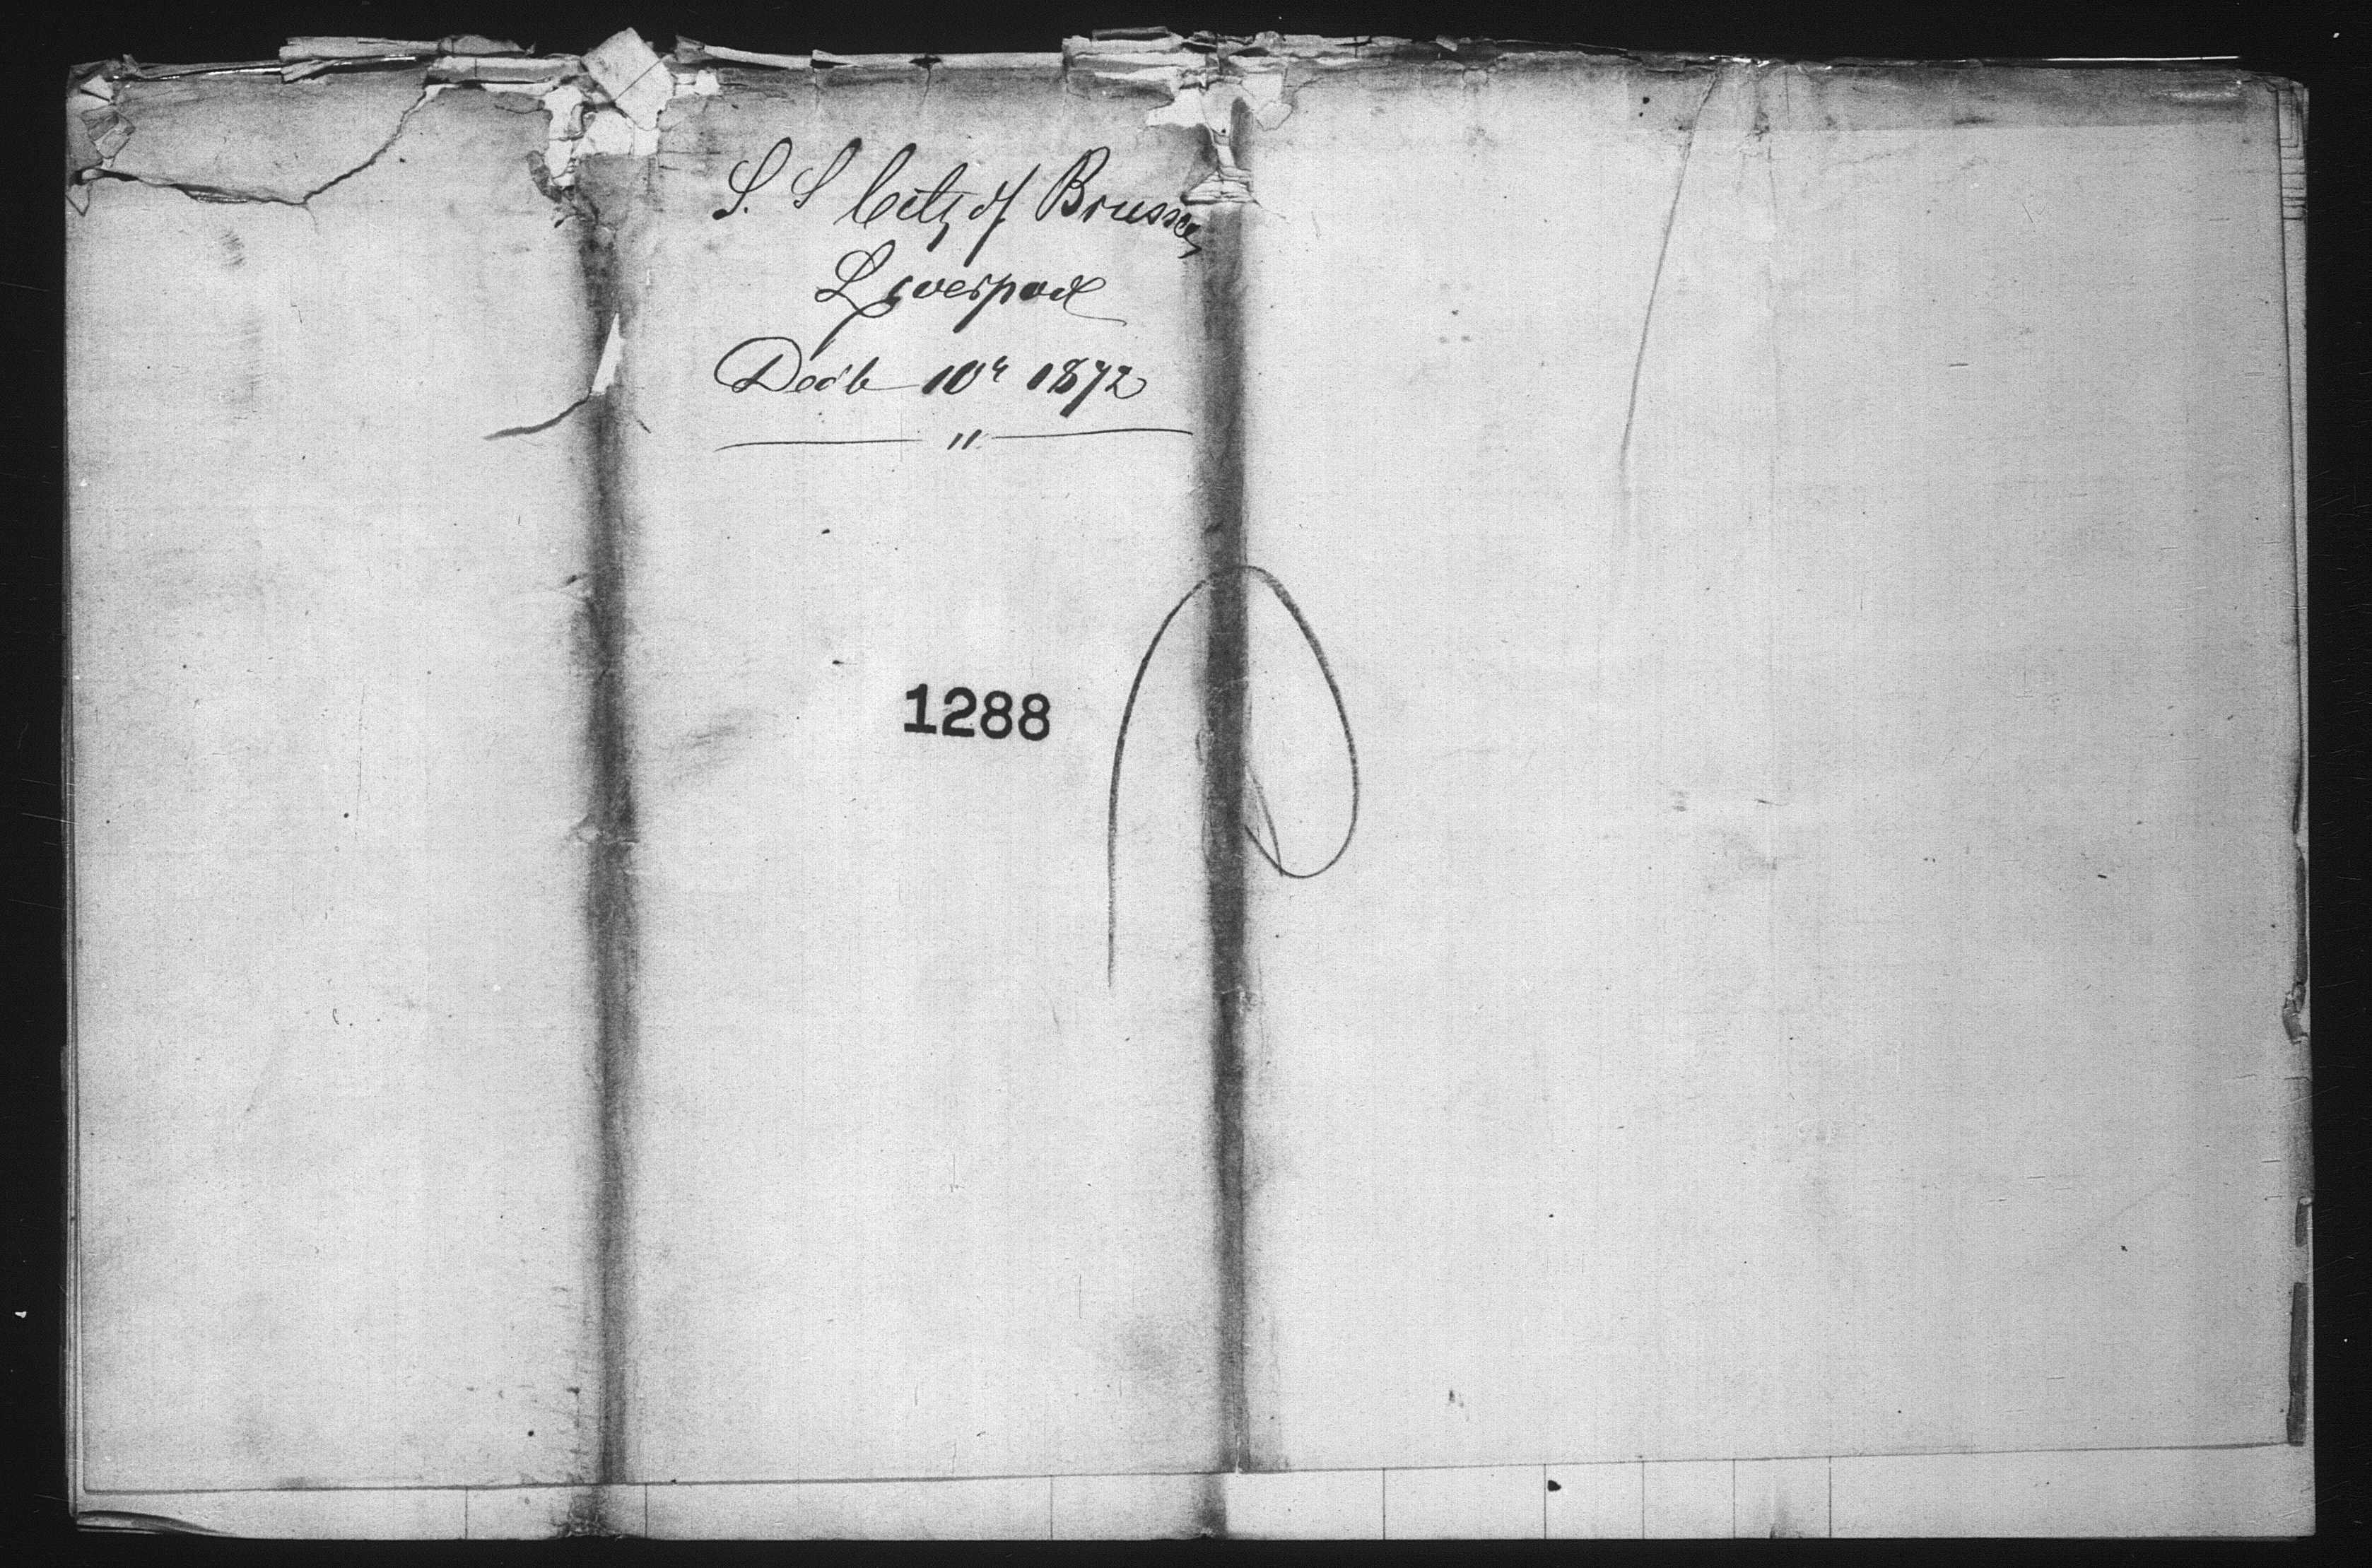 S. S City of Brussels
Liverpool
Decb 10th 1872
"
1288